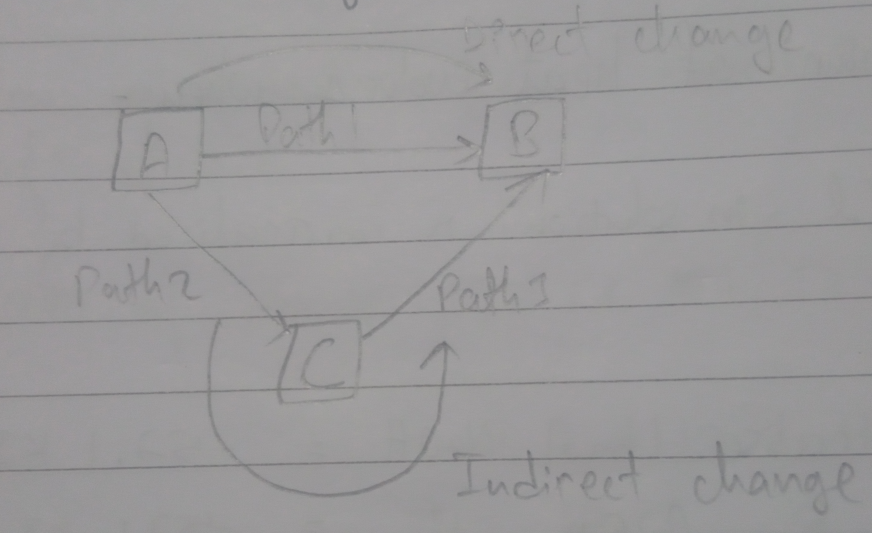 Direct change
A
Path 1
B
Path 2
Path 3
C
Indirect change